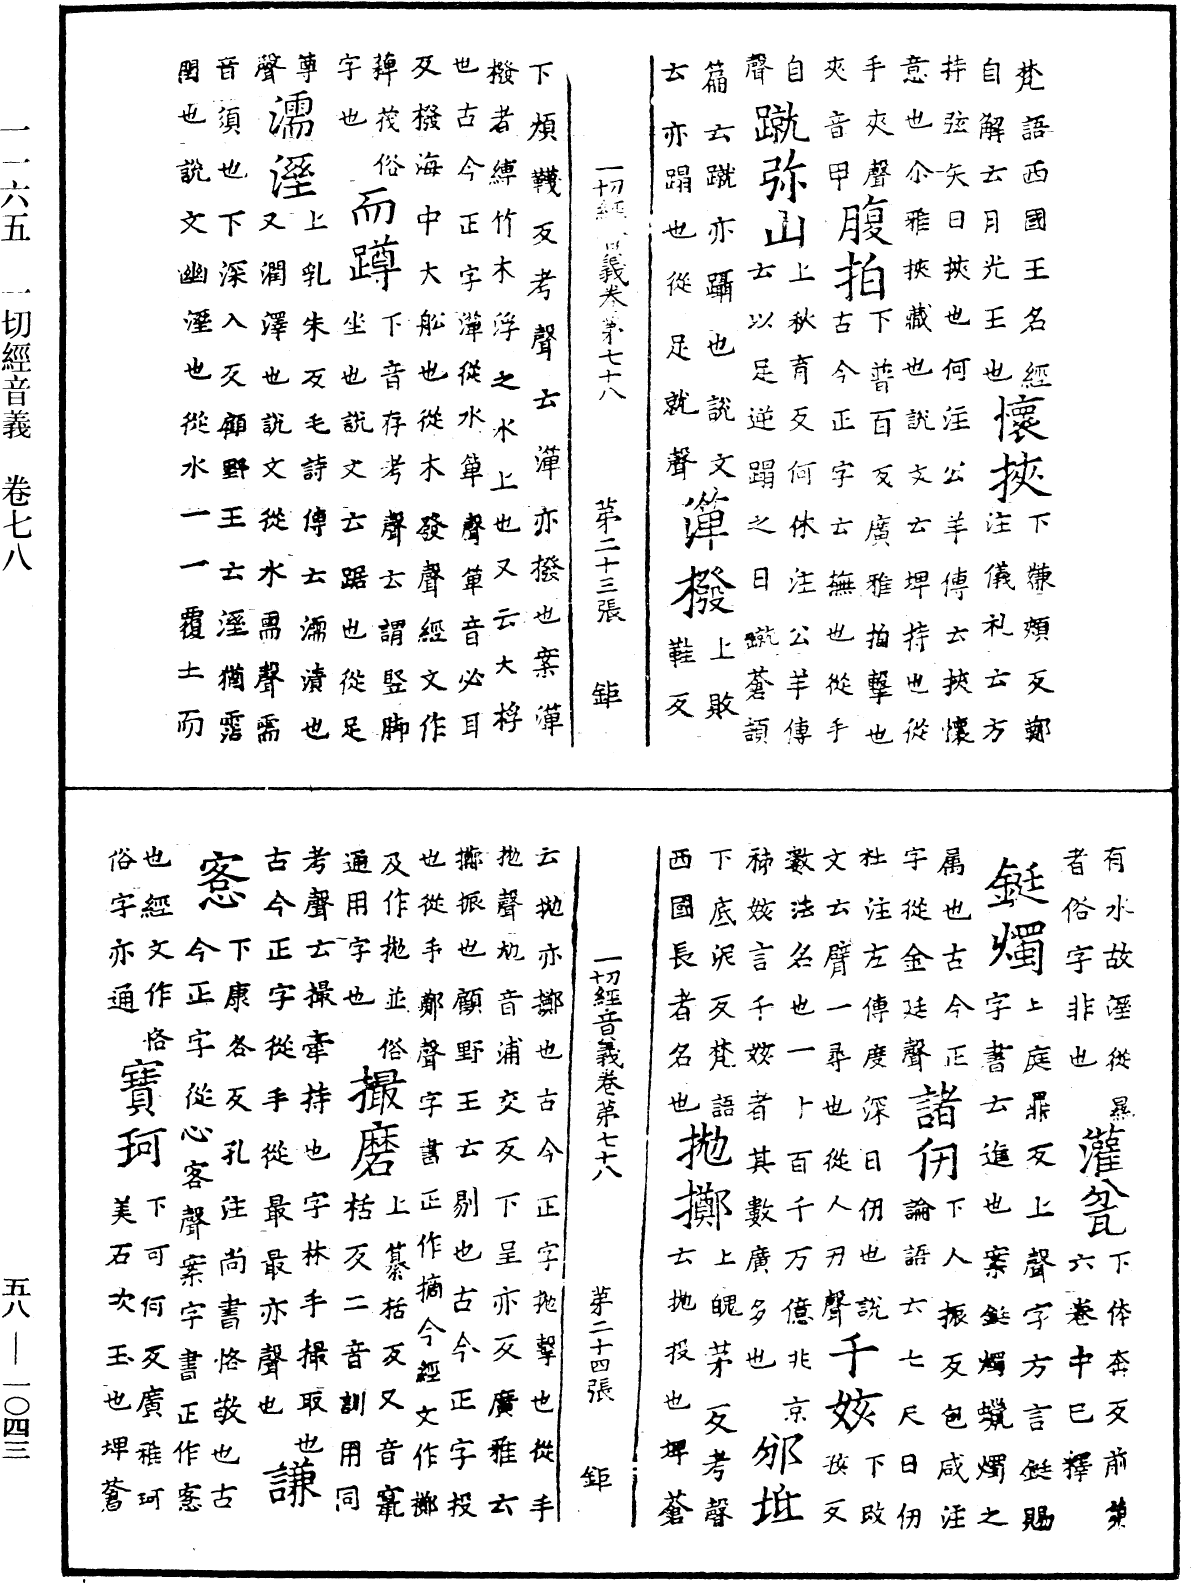 一一六五　一切經音義　卷七八
梵語西國王名經懷挾下嫌頰反鄭
自解云月光王也注儀礼云方
持弦矢曰挾也何注公羊傳云挾懷
意也尒雅挾藏也說文云埤持也從
手夾聲腹拍下普百反廣雅拍擊也
夾音甲古今正字云撫也從手
自蹴弥山上秋育反何休注公羊傳
聲云以足逆蹋之曰蹴蒼頡
篇云蹴亦躡也說文潬撥上敗
云亦蹋也從足就聲鞋反
一切經音義卷第七十八　第二十三張　鉅
下煩韈反考聲云潬亦撥也案潬
撥者縛竹木浮之水上也又云大桴
也古今正字潬從水箄聲箄音必耳
反撥海中大舩也從木發聲經文作
筏俗而蹲下音存考聲云謂竪脚
字也坐也說文云踞也從足
尊濡溼上乳朱反毛詩傳云濡漬也
聲又潤澤也說文從水需聲需
音須也下深入反顧野王云溼猶霑
也說文幽溼也從水一一覆土而
有水故溼從㬎灌瓫下体奔反前第
者俗字非也六卷中已釋
鋌燭上庭鼎反上聲字方言鋌賜
字書云進也案鋌燭蠟燭之
属也古今正諸仞下人振反包咸注
字從金廷聲論語云七尺曰仞
杜注左傳度深曰仞也說千姟下改
文云臂一尋也從人刃聲孩反
數法名也一卜百千万億兆京
秭姟言千姟者其數廣多也邠坻
下底泥反梵語拋擲上魄茅反考聲
西國長者名也云拋投也埤蒼
一切經音義卷第七十八　第二十四張　鉅
云拋亦擲也古今正字拋擊也從手
拋聲尥音浦交反下呈亦反廣雅云
擲振也顧野王云剔也古今正字投
也從手鄭聲字書正作擿今經文作擲
及作拋並俗撮磨上纂括反又音竄
通用字也栝反二音訓用同
考聲云撮牽持也字林手撮取也謙
古今正字從手從最最亦聲也
愙下康各反孔注尚書恪敬也古
今正字從心客聲案字書正作愙
也經文作恪寶珂下可何反廣雅珂
俗字亦通美石次玉也埤蒼
五八——一〇四三